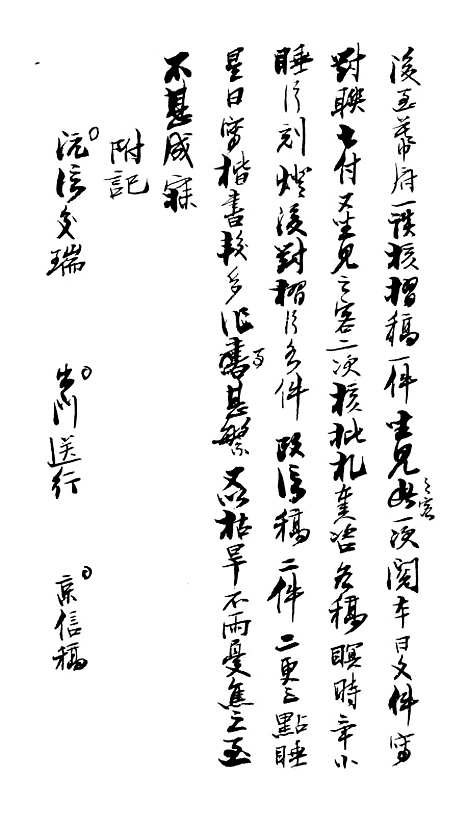 後至幕府一談核摺稿一件坐見之客一次閱本日文件寫
對聯七付又坐見之客二次核批札各稿暝時小
睡片刻燈後對摺片各件改信稿二件二更三點睡
是日寫楷書較多甚繁又以枯旱不雨憂焦之至
不甚成寐
附記
沅信交瑞 出門送行 京信稿